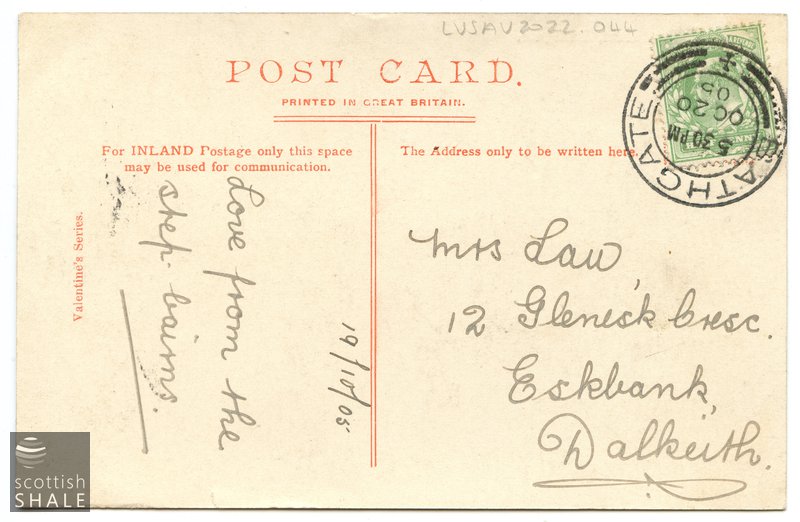 LVSAV2022.044
POST CARD.
PRINTED IN GREAT BRITAIN.
For INLAND Postage only this space
may be used for communication.
The Address only to be written here.
BATHGATE
5 30 PM
OC 20
05
Valentine's Series.
Love from the
step-bairns.
19/10/05
Mrs Law,
12 Glenesk Cresc.
Eskbank,
Dalkeith.
scottish
SHALE